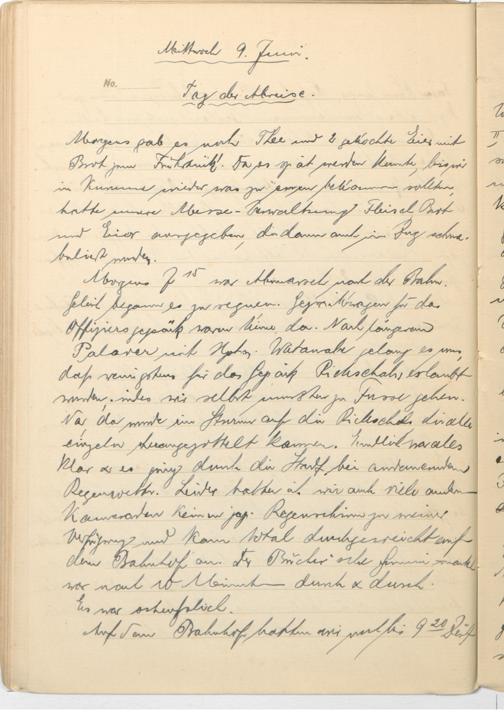 Mittwoch 9. Juni.
No.
Tag der Abreise.
Morgens gab es noch Thee und 2 gekochte Eier mit
Brot zum Frühstück. Da es spät werden konnte, bis wir
in Kurume wieder was zu essen bekommen sollten,
hatte unsere Messe-Verwaltung Fleisch Brot
und Eier ausgegeben, die dann auch im Zug schna-
buliert wurden.
Morgens 7 15 war Abmarsch nach der Bahn.
Gleich begann es zu regnen. Gepäckwagen für das
Offiziersgepäck waren keine da. Nach längerem
Palaver mit Watanabe gelang es uns,
daß wenigstens für das Gepäck Rickschahs erlaubt
wurden. indes wir selbst mussten zu Fusse gehen.
Na, da wurde im Sturm auf die Rickschahs die alle
einzeln herangezottelt kamen. Endlich war alles
klar & es ging durch die Stadt bei andauerndem
Regenwetter. Leider hatte ich wie auch viele andere
Kameraden keinen jap. Regenschirm zu meiner
Verfügung und kam total durchgeweicht auf
dem Bahnhof an. Der Bücher'sche
war nach 10 Minuten durch & durch.
Es war scheusslich.
Auf dem Bahnhof hatten wir noch bis 9 20 Zeit